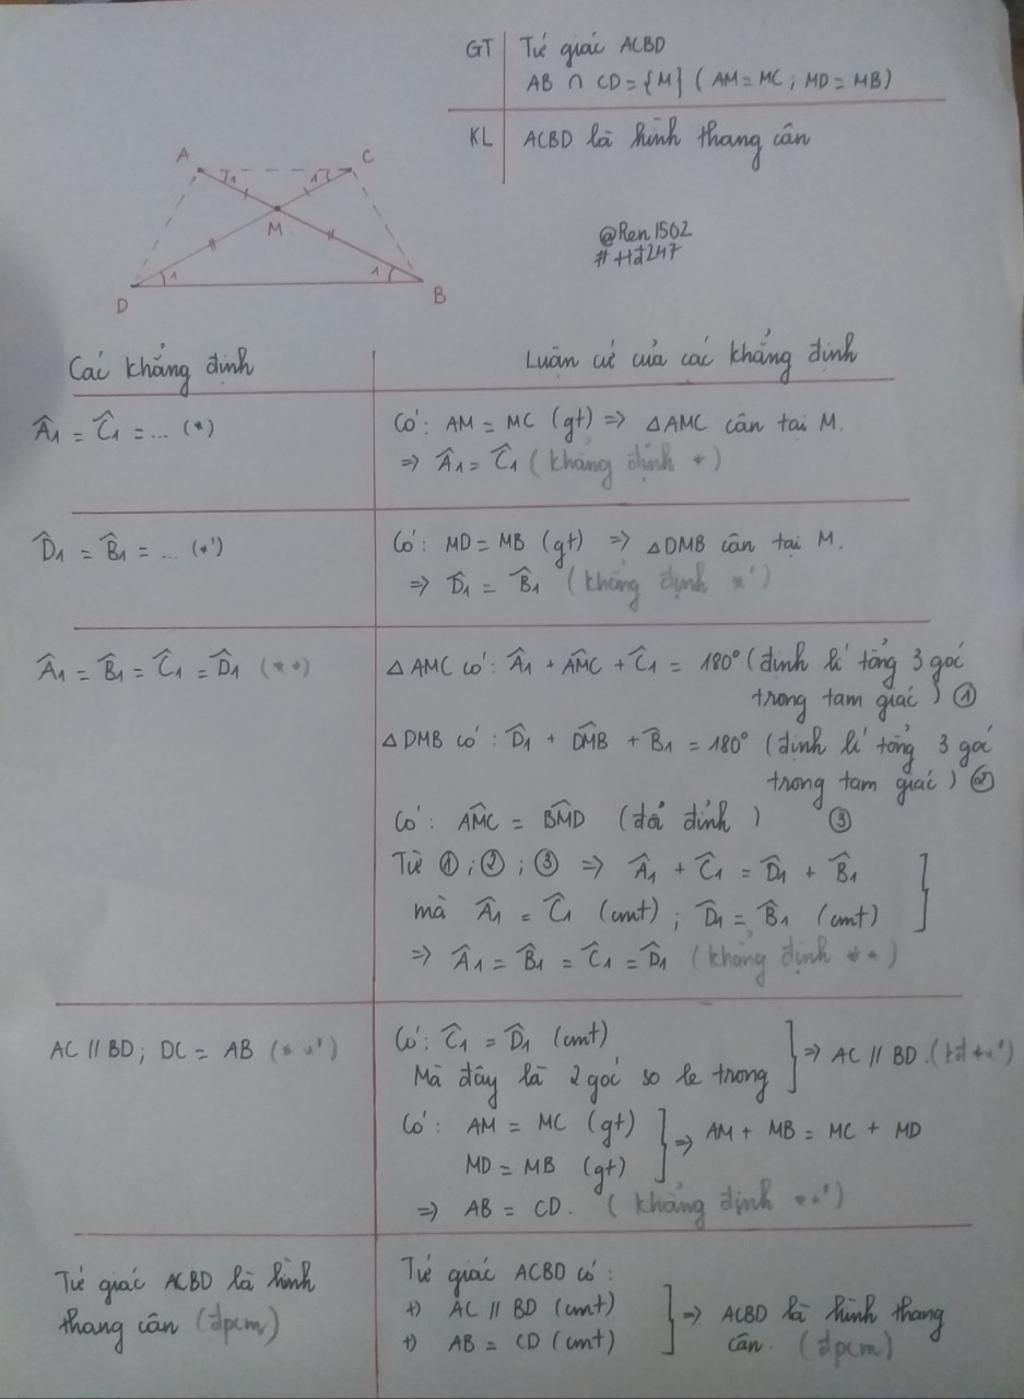 GT Tứ giác ACBD
AB ∩ CD = {M} ( AM = MC ; MD = MB )
KL ACBD là hình thang cân
A C
1 1
M
1 1
D B
@Ren1502
#Hđ247
Các khẳng định Luận cứ của các khẳng định
Â1 = Ĉ1 = ... (*) Có: AM = MC (gt) => △AMC cân tại M.
=> Â1 = Ĉ1 ( khẳng định * )
D̂1 = B̂1 = ... (*') Có: MD = MB (gt) => △DMB cân tại M.
=> D̂1 = B̂1 ( khẳng định *' )
Â1 = B̂1 = Ĉ1 = D̂1 (**) △AMC có: Â1 + AM̂C + Ĉ1 = 180° (định lí tổng 3 góc
trong tam giác ) ①
△DMB có : D̂1 + DM̂B + B̂1 = 180° (định lí tổng 3 góc
trong tam giác ) ②
Có : AM̂C = BM̂D (đối đỉnh ) ③
Từ ① ; ② ; ③ => Â1 + Ĉ1 = D̂1 + B̂1
mà Â1 = Ĉ1 (cmt) ; D̂1 = B̂1 (cmt)
=> Â1 = B̂1 = Ĉ1 = D̂1 ( khẳng định ** )
AC // BD ; DC = AB (**') Có: Ĉ1 = D̂1 (cmt)
Mà đây là 2 góc so le trong => AC // BD. (kđ **')
Có: AM = MC (gt)
MD = MB (gt) => AM + MB = MC + MD
=> AB = CD. ( khẳng định **' )
Tứ giác ACBD là hình
thang cân (đpcm)
Tứ giác ACBD có :
+) AC // BD (cmt)
+) AB = CD (cmt) => ACBD là hình thang
cân. (đpcm)